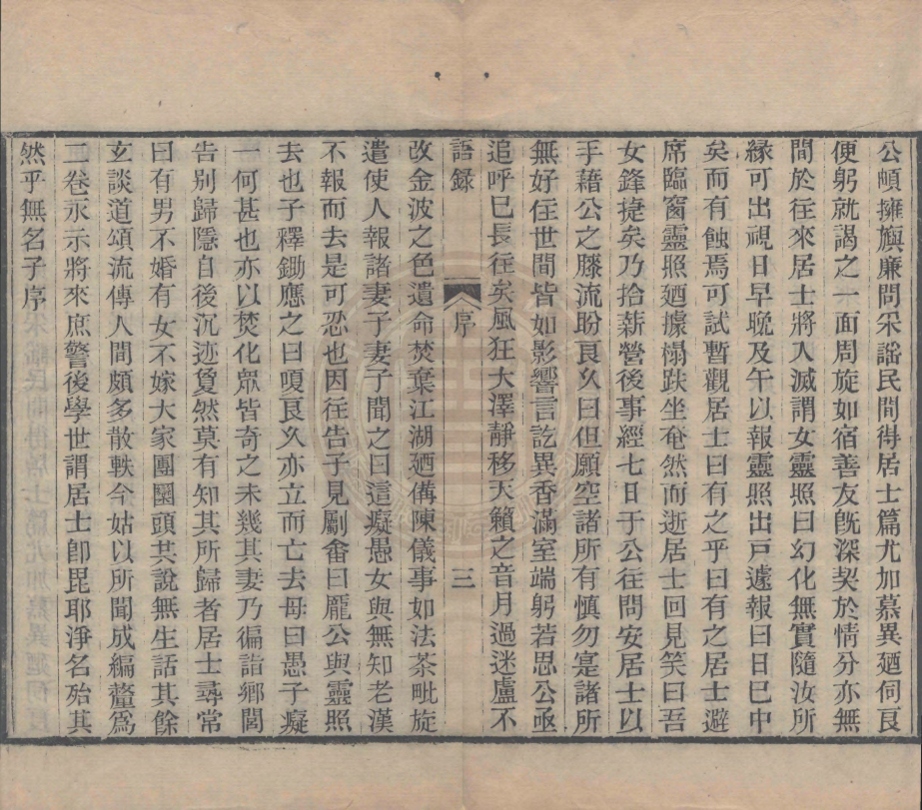 公頔擁旟廉問采謠民間得居士篇尤加慕異廼伺良
便躬就謁之一面周旋如宿善友既深契於情分亦無
間於往來居士將入滅謂女靈照曰幻化無實隨汝所
緣可出視日早晚及午以報靈照出戶遽報曰日已中
矣而有蝕焉可試暫觀居士曰有之乎曰有之居士避
席臨窗靈照廼據榻趺坐奄然而逝居士回見笑曰吾
女鋒捷矣乃拾薪營後事經七日于公往問安居士以
手藉公之膝流盼良久曰但願空諸所有慎勿寔諸所
無好住世間皆如影響言訖異香滿室端躬若思公亟
追呼已長往矣風狂大澤靜移天籟之音月過迷盧不
語錄 序 三
改金波之色遺命焚棄江湖廼備陳儀事如法茶毗旋
遣使人報諸妻子妻子聞之曰這癡愚女與無知老漢
不報而去是可忍也因往告子見劚畬曰龐公與靈照
去也子釋鋤應之曰嗄良久亦立而亡去母曰愚子癡
一何甚也亦以焚化眾皆奇之未幾其妻乃徧詣鄉閭
告別歸隱自後沉迹敻然莫有知其所歸者居士尋常
曰有男不婚有女不嫁大家團圞頭共說無生話其餘
玄談道頌流傳人間頗多散軼今姑以所聞成編釐為
二卷永示將來庶警後學世謂居士卽毘耶淨名殆其
然乎無名子序